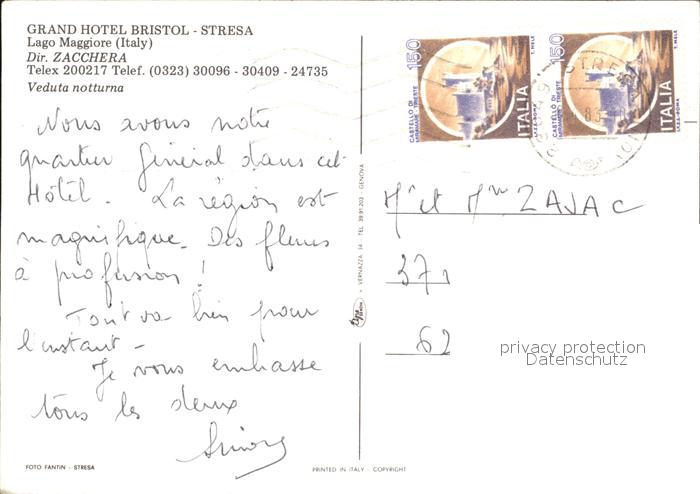 GRAND HOTEL BRISTOL - STRESA
Lago Maggiore (Italy)
Dir. ZACCHERA
Telex 200217 Telef. (0323) 30096 - 30409 - 24735
Veduta notturna
Nous avons notre
quartier général dans cet
Hôtel. La région est
magnifique. Des fleurs
à profusion !
Tout va bien pour
l'instant -
Je vous embrasse
tous les deux
FOTO FANTIN - STRESA
VERNAZZA 14 - TEL 39.91.203 - GENOVA
PRINTED IN ITALY - COPYRIGHT
150
CASTELLO DI
MIRAMARE · TRIESTE
ITALIA
I.P.Z.S. ROMA
T. MELE
150
CASTELLO DI
MIRAMARE · TRIESTE
ITALIA
I.P.Z.S. ROMA
T. MELE
STRESA
Mr et Mme ZAJAC
371
62
privacy protection
Datenschutz